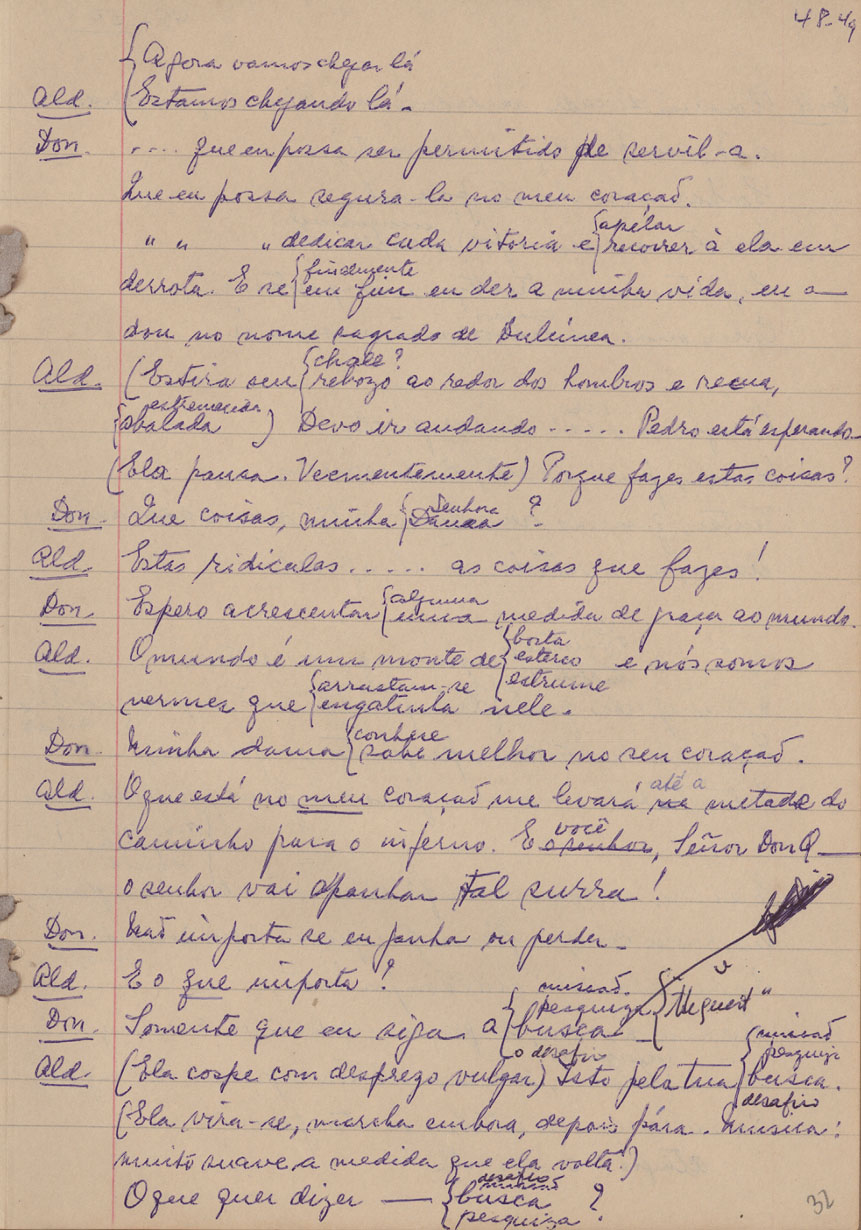 48-49
Agora vamos chegar lá
Ald. Estamos chegando lá.
Don. .... que eu possa ser permitido de servil-a.
Que eu possa segura-la no meu coração.
" " " dedicar cada vitoria e apelar
recorrer à ela em
finalmente
derrota. E se em fim eu der a minha vida, eu a
dou no nome sagrado de Dulcinea.
chale?
Ald. (Estira seu rebozo ao redor dos hombros e recua,
estremecida
abalada) Devo ir andando ..... Pedro está esperando
(Ela pausa. Veementemente) Porque fazes estas coisas?
Senhora
Don. Que coisas, minha Dama ?
Ald. Estas ridiculas ..... as coisas que fazes!
alguma
Don. Espero acrescentar uma medida de graça ao mundo.
bosta
Ald. O mundo é um monte de esterco e nós somos
estrume
arrastam-se
vermes que engatinha nele.
conhece
Don. Minha dama sabe melhor no seu coração.
até a
Ald. O que está no meu coração me levará na metade do
você
caminho para o inferno. E o senhor, Señor Don Q —
o senhor vai apanhar tal surra!
Don. Não importa se eu ganha ou perder.
Ald. E o que importa?
missão
pesquiza
Don. Somente que eu siga a busca -
o desafio
missão
pesquiza
Ald. (Ela cospe com desprezo vulgar) Isto pela tua busca.
desafio
(Ela vira-se, marcha embora, depois pára. Musica:
muito suave, a medida que ela volta.)
desafio
missão
O que quer dizer — busca ?
pesquiza
32